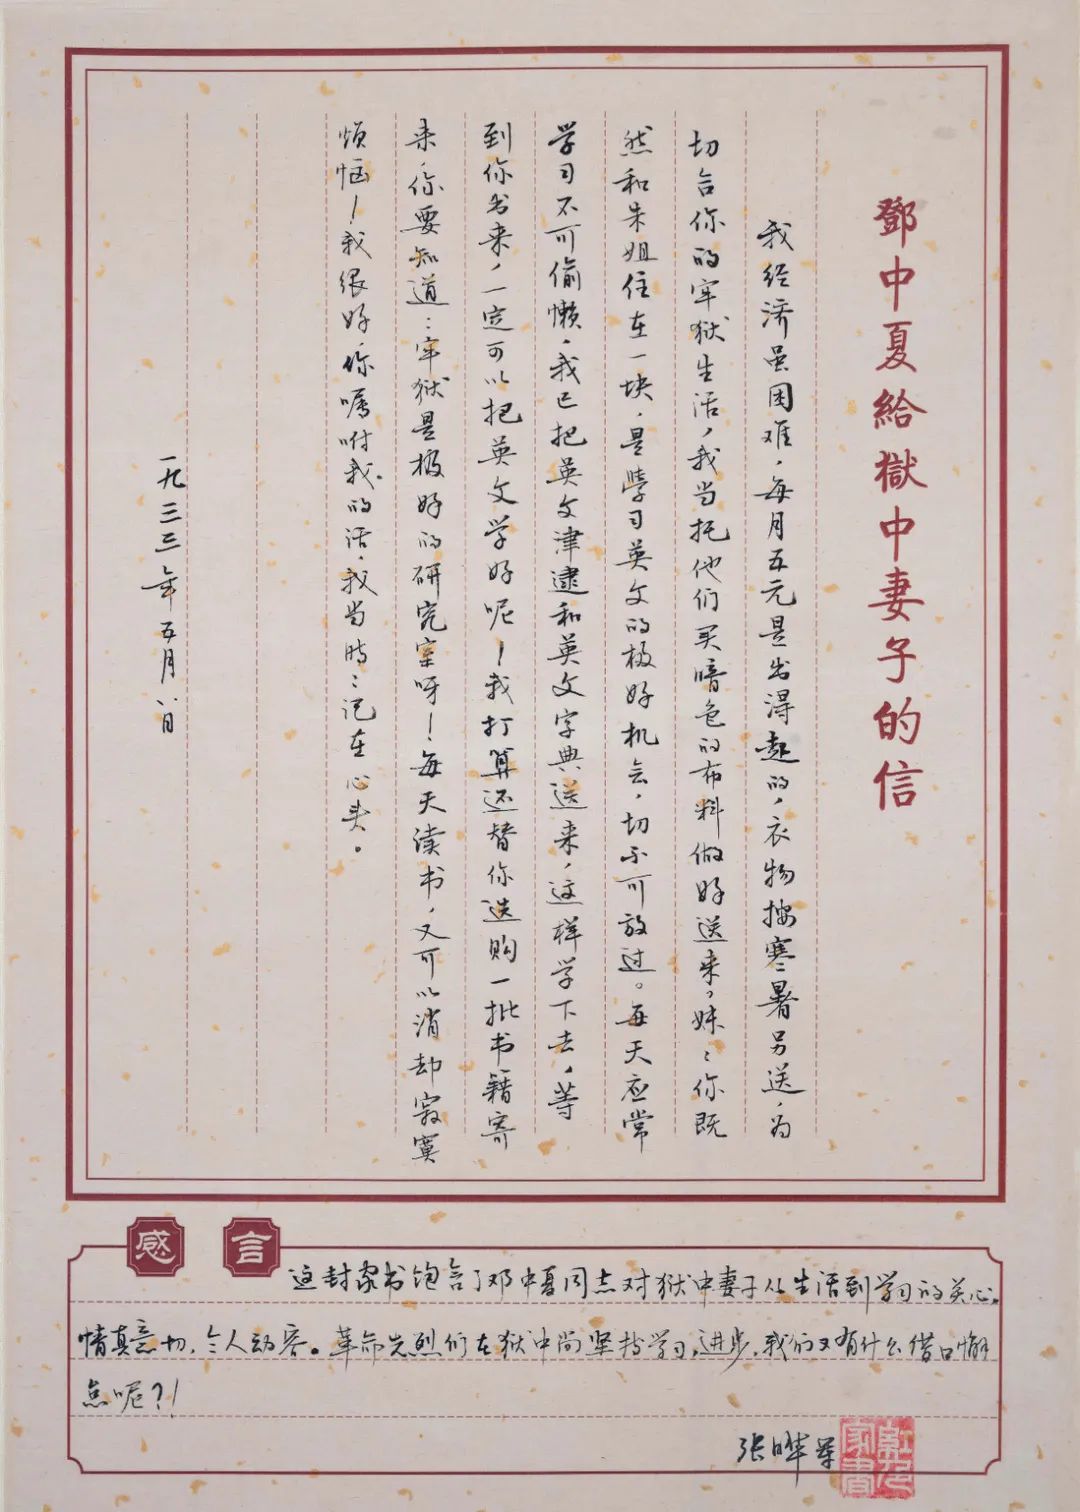 鄧中夏給獄中妻子的信
我经济虽困难，每月五元是出得起的，衣物按寒暑另送，为
切合你的牢狱生活，我当托他们买暗色的布料做好送来。妹：你既
然和朱姐住在一块，是学习英文的极好机会，切不可放过。每天应常
学习不可偷懒，我已把英文津逮和英文字典送来，这样学下去，等
到你出来，一定可以把英文学好呢！我打算还替你选购一批书籍寄
来，你要知道：牢狱是极好的研究室呀！每天读书，又可以消却寂寞
烦恼！我很好，你嘱咐我的话，我当时：记在心头。
一九三三年五月八日
感言
这封家书饱含了邓中夏同志对狱中妻子从生活到学习的关心。
情真意切，令人动容。革命先烈们在狱中尚坚持学习，进步，我们又有什么借口懈
怠呢？！
张晔
红色家书